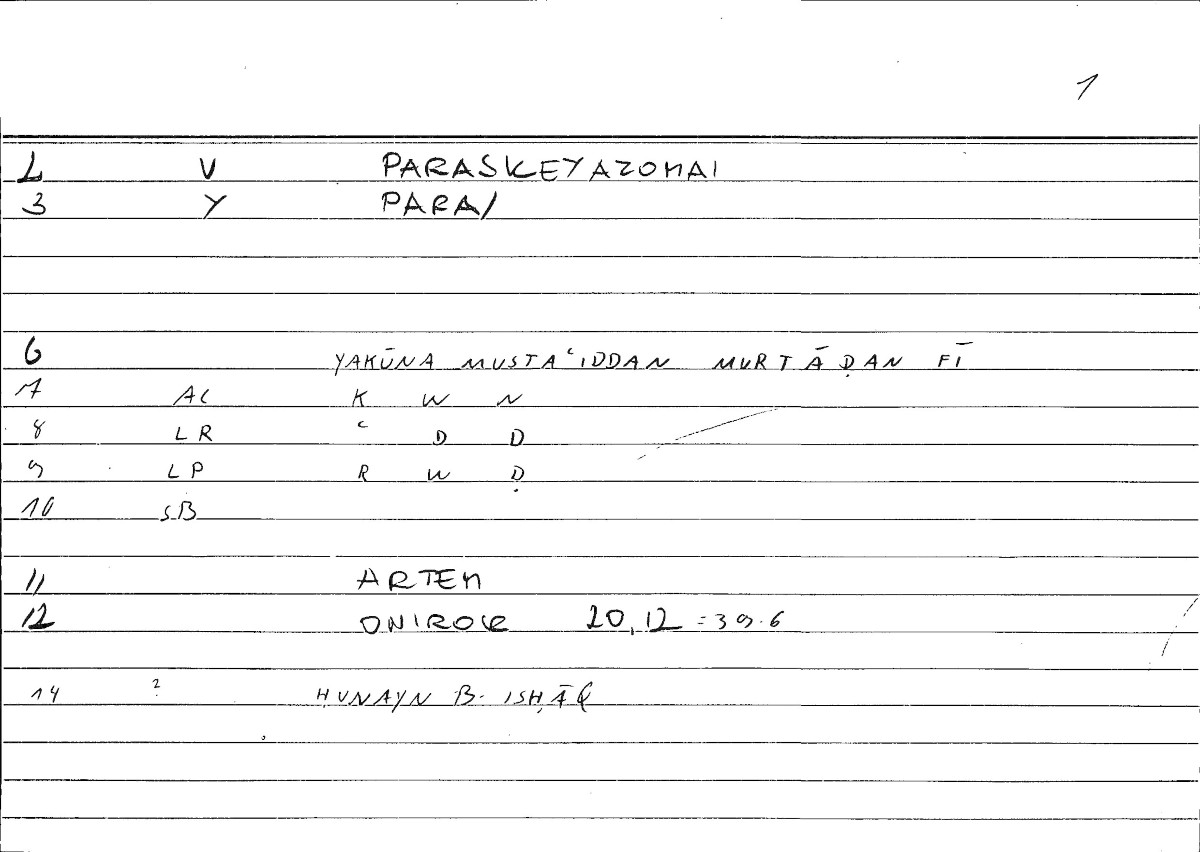 1
2 V PARASKEYAZOMAI
3 Y PARA/
6 YAKŪNA MUSTAʿIDDAN MURTĀḌAN FĪ
7 AC K W N
8 LR ʿ D D
9 LP R W Ḍ
10 SB
11 ARTEM
12 ONIROCR 20,12 = 39.6
14 ? ḤUNAYN B. ISḤĀQ